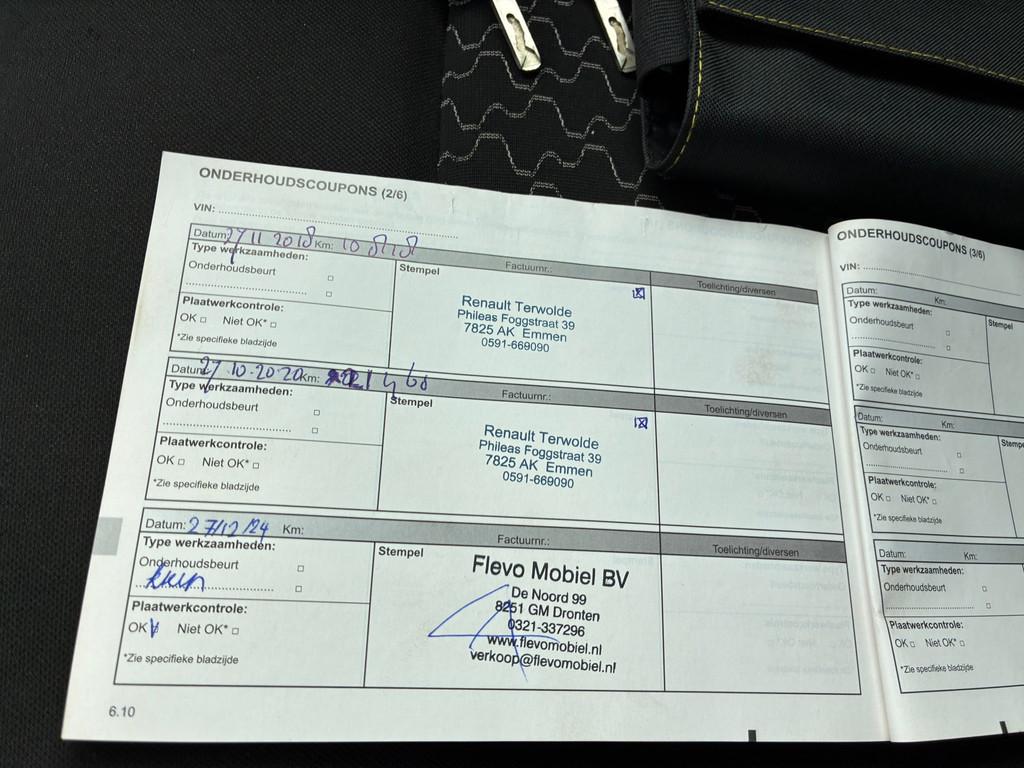 ONDERHOUDSCOUPONS (2/6)
VIN:
Datum: 27 11 2018 Km:
Type werkzaamheden:
Onderhoudsbeurt
Plaatwerkcontrole:
OK Niet OK*
*Zie specifieke bladzijde
Factuurnr.:
Stempel
Renault Terwolde
Phileas Foggstraat 39
7825 AK Emmen
0591-669090
Toelichting/diversen
Datum: 27 10-2020 Km:
Type werkzaamheden:
Onderhoudsbeurt
Plaatwerkcontrole:
OK Niet OK*
*Zie specifieke bladzijde
Factuurnr.:
Stempel
Renault Terwolde
Phileas Foggstraat 39
7825 AK Emmen
0591-669090
Toelichting/diversen
Datum: 27/12/24 Km:
Type werkzaamheden:
Onderhoudsbeurt
Plaatwerkcontrole:
OK Niet OK*
*Zie specifieke bladzijde
Factuurnr.:
Stempel
Flevo Mobiel BV
De Noord 99
8251 GM Dronten
0321-337296
www.flevomobiel.nl
verkoop@flevomobiel.nl
Toelichting/diversen
6.10
ONDERHOUDSCOUPONS (3/6)
VIN:
Datum: Km:
Type werkzaamheden:
Onderhoudsbeurt
Plaatwerkcontrole:
OK Niet OK*
*Zie specifieke bladzijde
Stempel
Datum: Km:
Type werkzaamheden:
Onderhoudsbeurt
Plaatwerkcontrole:
OK Niet OK*
*Zie specifieke bladzijde
Stempe
Datum: Km:
Type werkzaamheden:
Onderhoudsbeurt
Plaatwerkcontrole:
OK Niet OK*
*Zie specifieke bladzijde